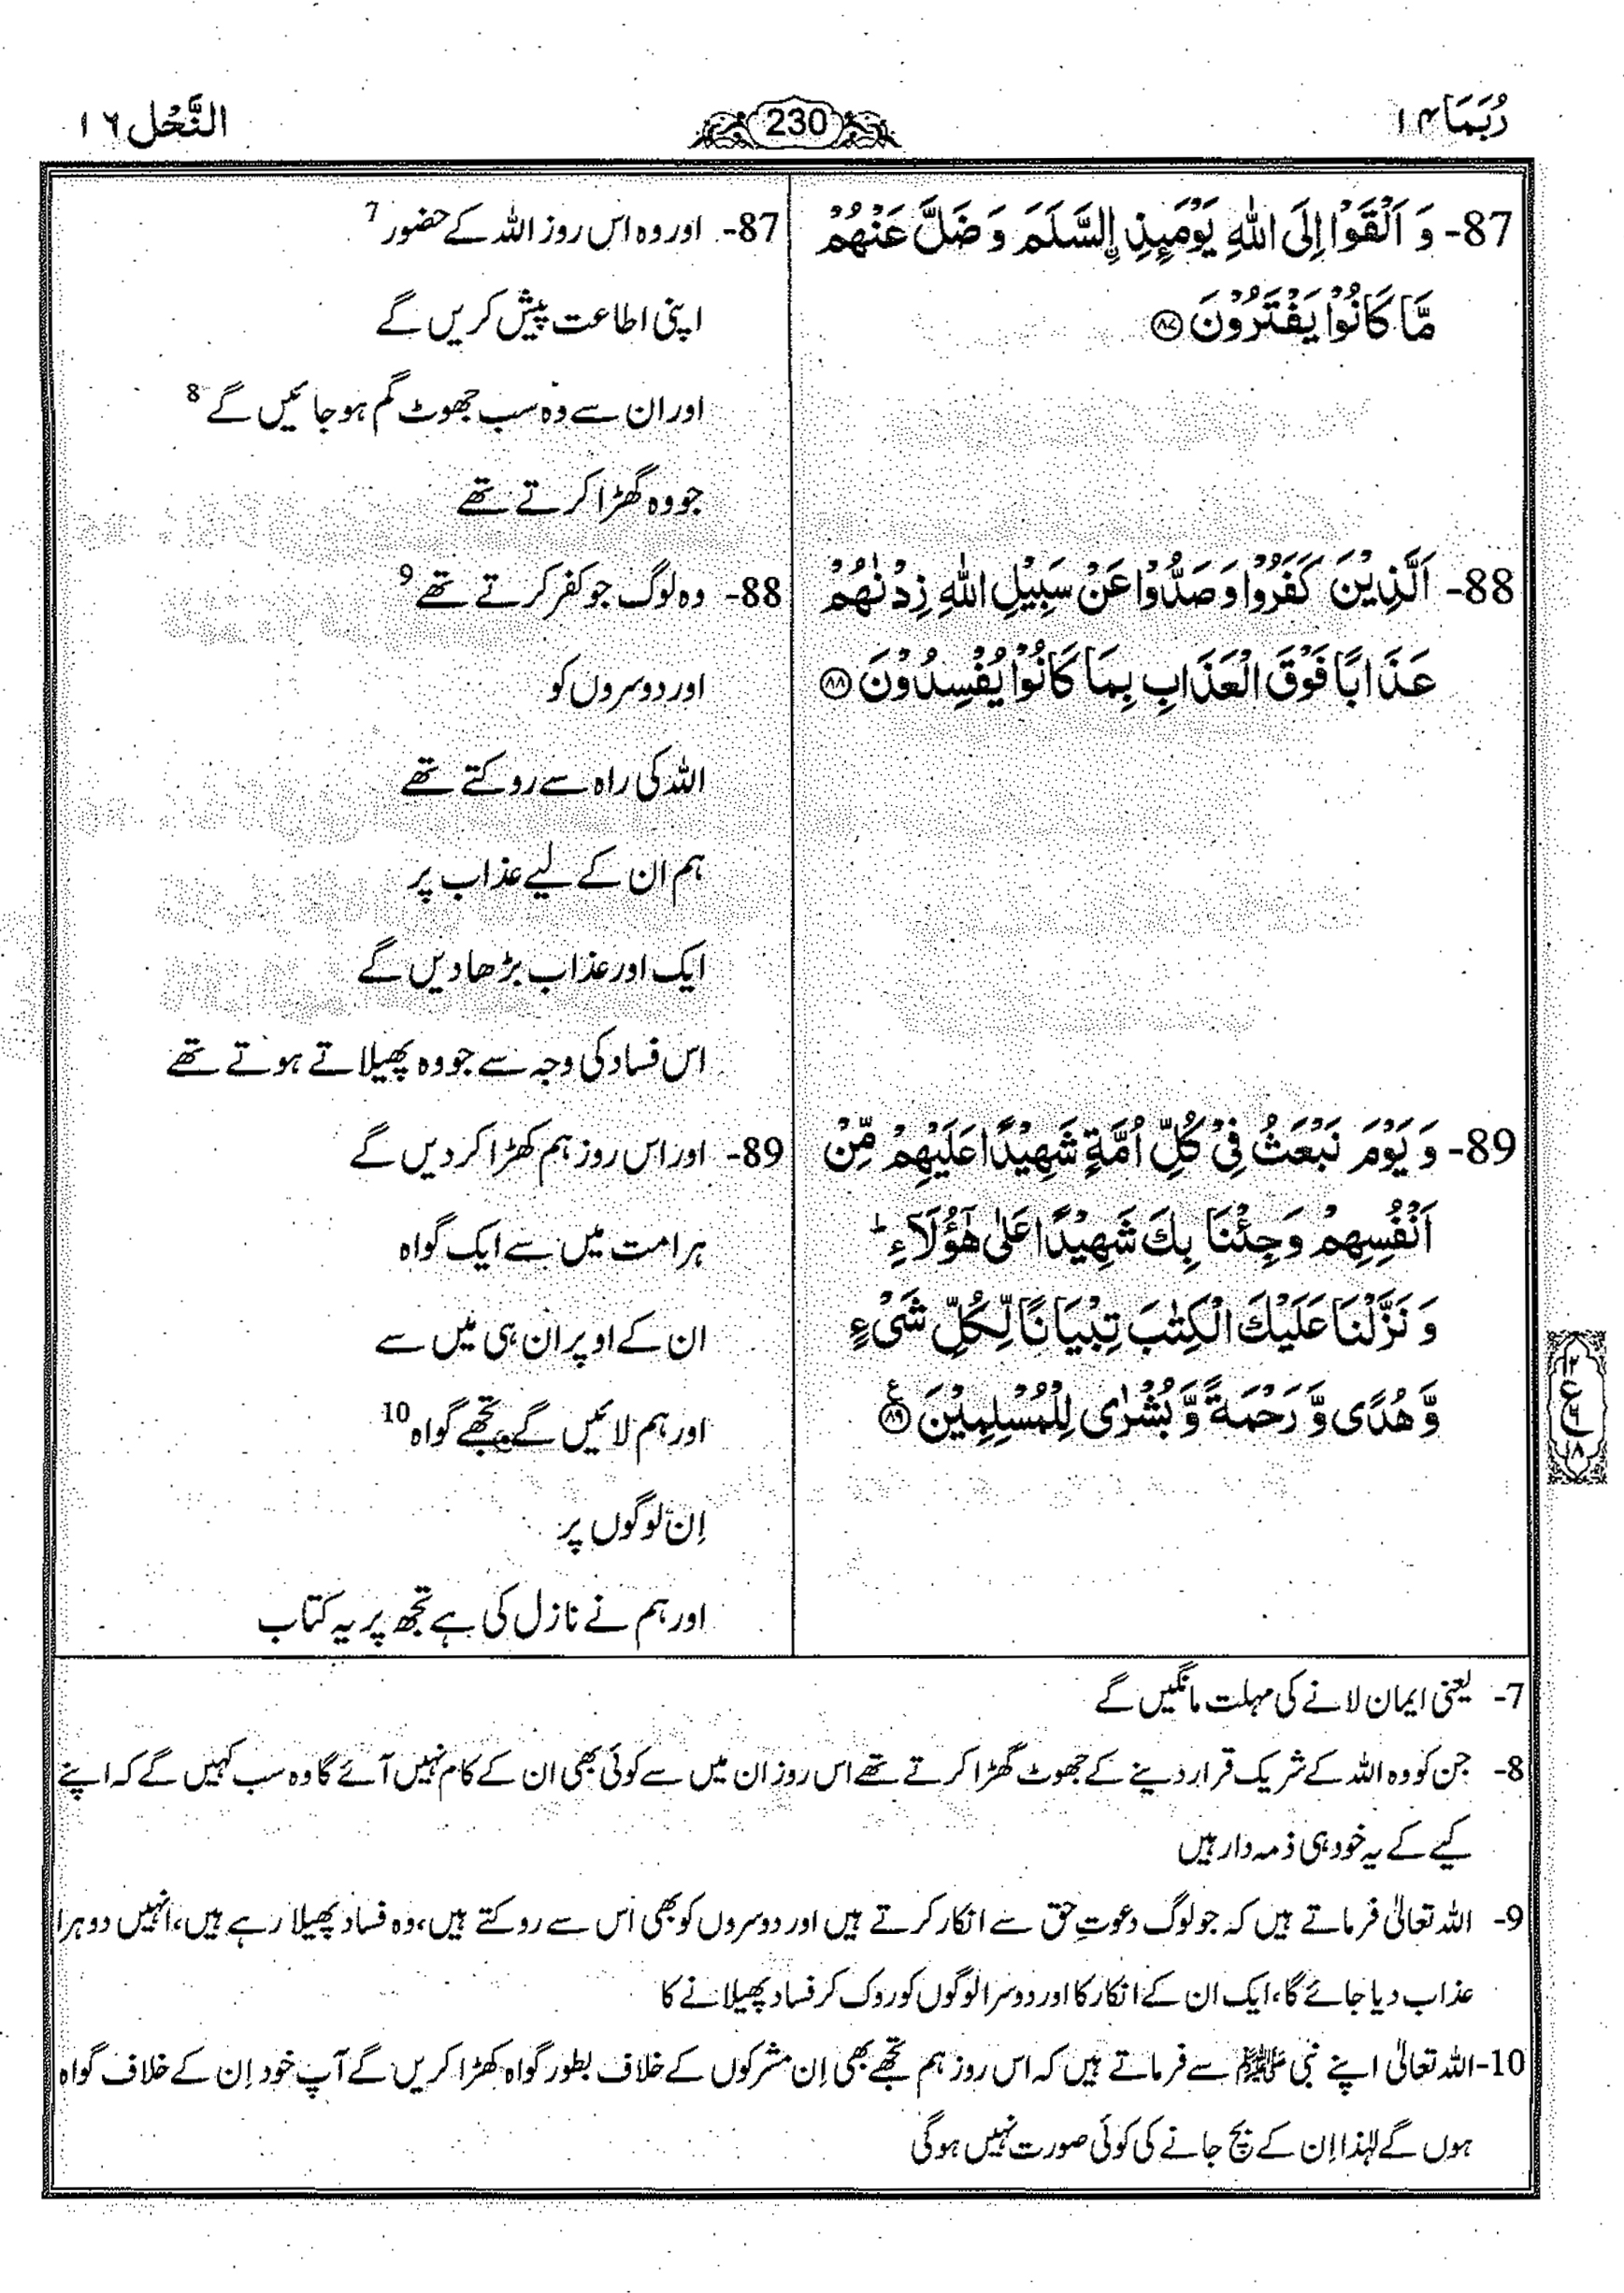 رُبَمَا ۱۴
230
النَّحْل ۱۶
87- وَ اَلْقَوْا اِلَى اللّٰهِ يَوْمَىِٕذِ اِ۟لسَّلَمَ وَ ضَلَّ عَنْهُمْ
مَّا كَانُوْا يَفْتَرُوْنَ ﴿۸۷﴾
88- اَلَّذِيْنَ كَفَرُوْا وَ صَدُّوْا عَنْ سَبِيْلِ اللّٰهِ زِدْنٰهُمْ
عَذَابًا فَوْقَ الْعَذَابِ بِمَا كَانُوْا يُفْسِدُوْنَ ﴿۸۸﴾
89- وَ يَوْمَ نَبْعَثُ فِيْ كُلِّ اُمَّةٍ شَهِيْدًا عَلَيْهِمْ مِّنْ
اَنْفُسِهِمْ وَ جِئْنَا بِكَ شَهِيْدًا عَلٰى هٰۤؤُلَآءِ ؕ
وَ نَزَّلْنَا عَلَيْكَ الْكِتٰبَ تِبْيَانًا لِّكُلِّ شَيْءٍ
وَّ هُدًى وَّ رَحْمَةً وَّ بُشْرٰى لِلْمُسْلِمِيْنَ ﴿۸۹﴾ ع
87- اور وہ اس روز اللہ کے حضور 7
اپنی اطاعت پیش کریں گے
اور ان سے وہ سب جھوٹ گم ہو جائیں گے 8
جو وہ گھڑا کرتے تھے
88- وہ لوگ جو کفر کرتے تھے 9
اور دوسروں کو
اللہ کی راہ سے روکتے تھے
ہم ان کے لیے عذاب پر
ایک اور عذاب بڑھا دیں گے
اس فساد کی وجہ سے جو وہ پھیلاتے ہوتے تھے
89- اور اس روز ہم کھڑا کر دیں گے
ہر امت میں سے ایک گواہ
ان کے اوپر ان ہی میں سے
اور ہم لائیں گے تجھے گواہ 10
اِن لوگوں پر
اور ہم نے نازل کی ہے تجھ پر یہ کتاب
۱۲
ع
۶
۱۸
7- یعنی ایمان لانے کی مہلت مانگیں گے
8- جن کو وہ اللہ کے شریک قرار دینے کے جھوٹ گھڑا کرتے تھے اس روز ان میں سے کوئی بھی ان کے کام نہیں آئے گا وہ سب کہیں گے کہ اپنے
کیے کے یہ خود ہی ذمہ دار ہیں
9- اللہ تعالیٰ فرماتے ہیں کہ جو لوگ دعوتِ حق سے انکار کرتے ہیں اور دوسروں کو بھی اس سے روکتے ہیں، وہ فساد پھیلا رہے ہیں، انہیں دوہرا
عذاب دیا جائے گا، ایک ان کے انکار کا اور دوسرا لوگوں کو روک کر فساد پھیلانے کا
10- اللہ تعالیٰ اپنے نبی ﷺ سے فرماتے ہیں کہ اس روز ہم تجھے بھی اِن مشرکوں کے خلاف بطور گواہ کھڑا کریں گے آپ خود اِن کے خلاف گواہ
ہوں گے لہٰذا اِن کے بچ جانے کی کوئی صورت نہیں ہوگی